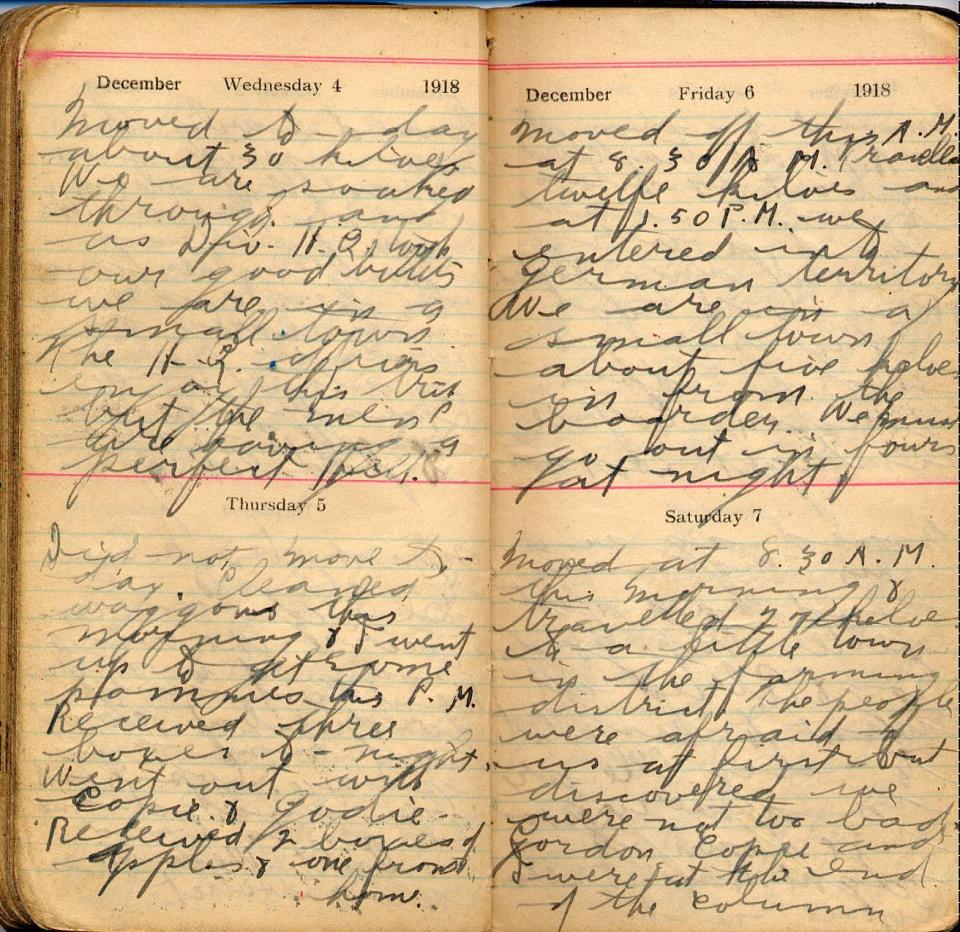 December Wednesday 4 1918
Moved to-day
about 30 kiloes
We are soaked
through and
as Div. H.Q. took
our good billets
we are in a
small town.
The H.Q. drivers
enjoy this trip
but the men
are having a
perfect Hell.
Thursday 5
Did not move to-
day. Cleaned
waggons this
morning & I went
up to get some
pommies this P.M.
Received three
boxes to-night.
Went out with
Copie & Godie.
Received 2 boxes of
apples & one from
home.
December Friday 6 1918
Moved off this A.M.
at 8.30 A.M. Travelled
twelve kiloes and
at 1.50 P.M. we
entered into
German territory
We are in a
small town
about five kiloes
in from the
boarder. We must
go out in fours
at night.
Saturday 7
Moved at 8.30 A.M.
this morning &
travelled kiloe
to a little town
in the farming
district. The people
were afraid of
us at first but
discovered we
were not too bad.
Gordon, Copie and
I were at the end
of the column